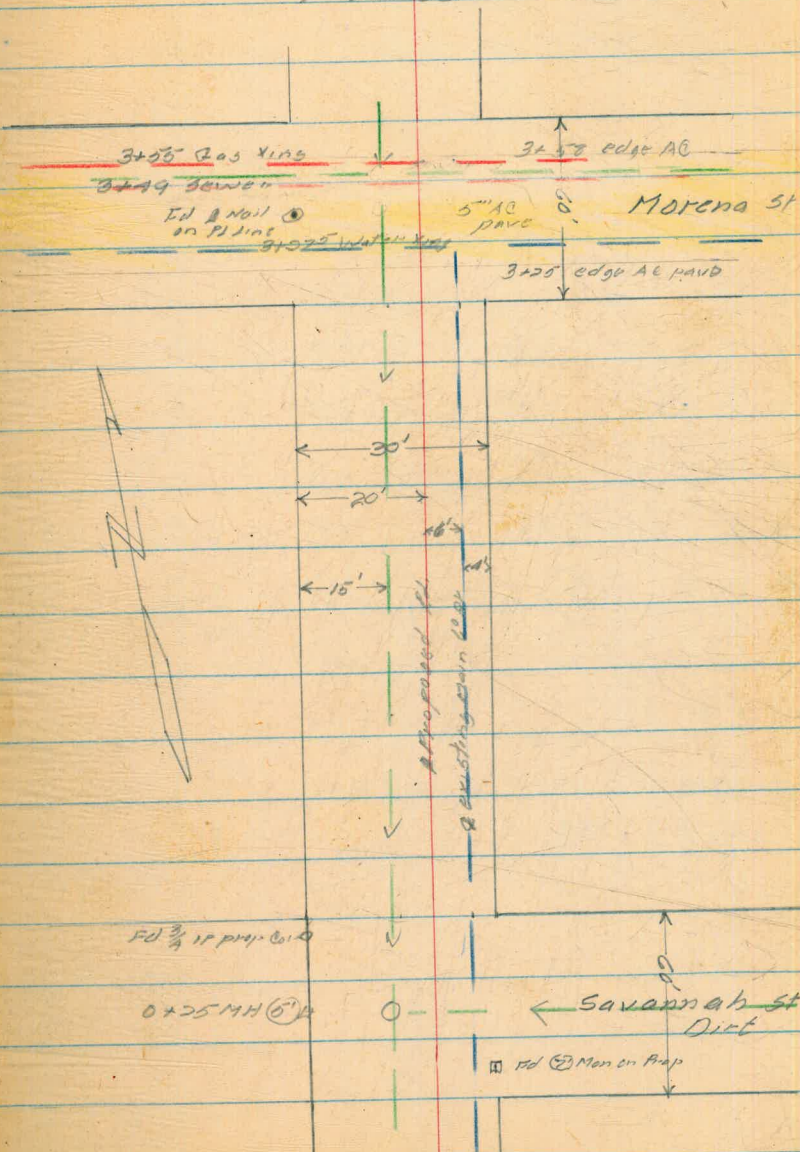 3+55 Gas Xing
3+58 edge AC
3+49 Sewer
Fd Nail
on Pl line
5" AC
pave
60'
Morena St
Water Xing
3+25 edge AC pave
30'
20'
6'
4'
15'
N
Proposed PL
existing Main
Fd 3/4 IP prop Cor
0+25 MH 5'
Savannah St
Dirt
60'
Fd Mon on Prop